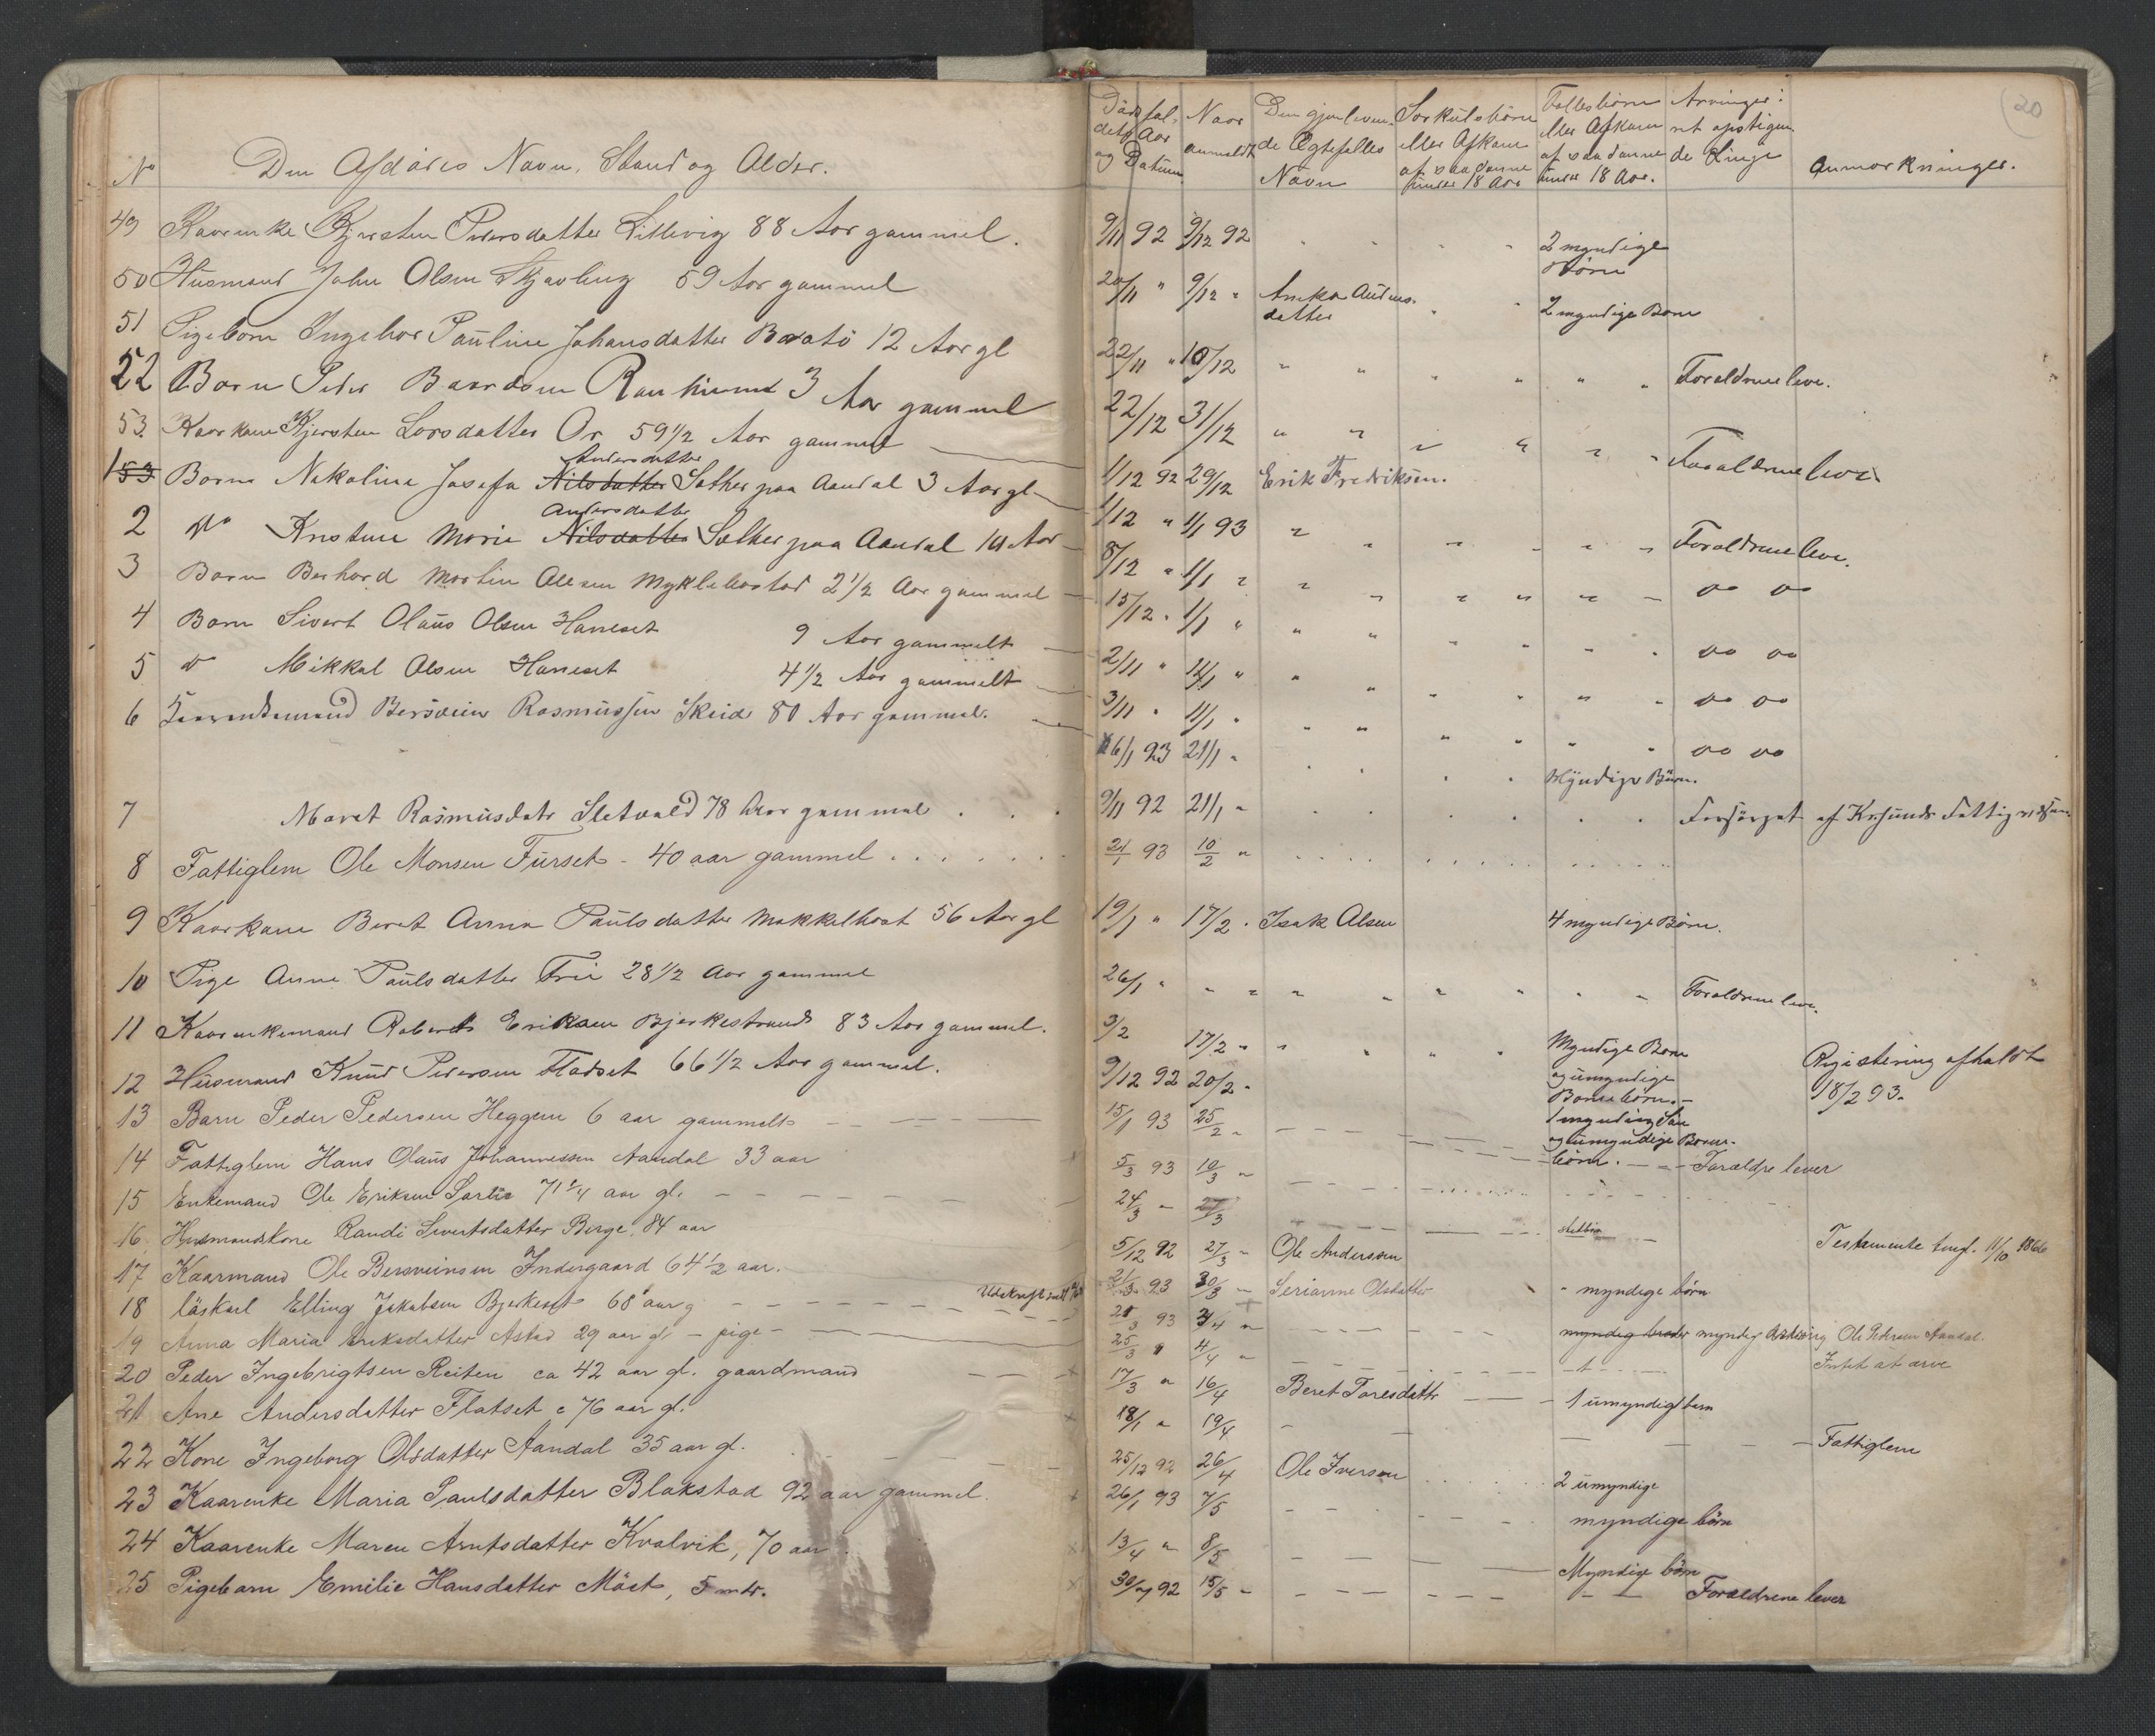 No Den Afdödes Navn, Stand og Alder.
49 Kaarenke Kjersten Pedersdatter Lillevig 88 Aar gammel.
50 Husmand John Olsen Skjøvling 59 Aar gammel
51 Pigebarn Ingebor Pauline Johansdatter 12 Aar gl
52 Barn Peder Baardsen 3 Aar gammel
53. Kaarkone Kjersten Larsdatter Ør 59 1/2 Aar gammel
Andersdatter
1 53 Barn Nekoline Josefa Nilsdatter Sæther paa Aandal 3 Aar gl
Andersdatter
2 do Kristine Marie Nilsdatter Sæther paa Aandal Aar
3 Barn Berhard Martin Olesen Myklebostad 2 1/2 Aar gammel
4 Barn Sivert Olaus Olsen Haneset 9 Aar gammelt
5 do Mikkal Olsen Haneset 4 1/2 Aar gammelt
6 Bersvein Rasmussen Skeid 80 Aar gammel.
7 Maret Rasmusdatr Sletvold 78 Aar gammel
8 Fattiglem Ole Monsen Furset - 40 aar gammel
9 Kaarkone Beret Anna Paulsdatter Makkelhost 56 Aar gl
10 Pige Anne Paulsdatter Frei 28 1/2 Aar gammel
11 Kaarenkemand Roberet Eriksen Bjerkestrand 83 Aar gammel.
12 Husmand Knud Pedersen Fladset 66 1/2 Aar gammel.
13 Barn Peder Pedersen Heggem 6 aar gammelt
14 Fattiglem Hans Olaus Johannessen Aandal 33 aar
15 Enkemand Ole Eriksen Sorlie 71 1/4 aar gl.
16. Husmandskone Randi Sivertsdatter Berge, 84 aar
17 Kaarmand Ole Bersveinsen Indergaard 64 1/2 aar.
18 läskarl Elling Jakobsen Bjerkeset 68 aar g
19 Anna Maria Eriksdatter Astad 29 aar gl - pige -
20 Peder Ingebrigtsen Reiten ca 42 aar gl. gaardmand
21 Ane Andersdatter Flatset c 76 aar gl.
22 Kone Ingeborg Olsdatter Aandal 35 aar gl.
23 Kaarenke Maria Paulsdatter Blakstad 92 aar gammel.
24 Kaarenke Maren Arntsdatter Kvalvik, 70 aar.
25 Pigebarn Emilie Hansdatter Möst, 5 mdr.
20
Dödsfaldets Aar og Datum
Naar anmeldt
Den gjenlevende Ægtefælles Navn
Særkulsbörn eller Afkom af saadanne under 18 Aar
Fellesbörn eller Afkom af saadanne under 18 Aar.
Arvinger i ret opstigende Linje
Anmærkninger.
9/11 92 9/12 92 2 myndige Börn
20/11 " 9/12 " datter 2 myndige Born
22/11 " 10/12 Foraldrene leve.
22/12 31/12 Foraldrene leve
1/12 92 29/12 Erik Fredriksen.
1/12 " 1/1 93 Foraldrene leve.
8/12 " 1/1 " do do
15/12 " 1/1 " do do
2/11 " 11/1 " do do
3/11 " 11/1 " do do
16/1 93 21/1 " Myndige Börn.
9/11 92 21/1 " Forsörget af
21/1 93 10/2 "
19/1 " 17/2 " Isak Olsen 4 myndige Börn.
26/1 " Foraldrene leve.
3/2 17/2 " Myndige Born og umyndige Bornebörn.
9/12 92 20/2 - 1 myndig Sön og umyndige Bornebörn. Registering afholdt 18/2 93.
15/1 93 25/2 " Foreldre lever
5/3 93 10/3 "
24/3 " 27/3
5/12 92 27/3 " Ole Anderssen Testamente 11/10 1866
21/3 93 30/3 " Serianne Olsdatter - myndige börn
21/3 93 3/4 " myndig broder myndig Ole Pedersen Aandal.
25/3 " 4/4 " Intet at arve
17/3 " 16/4 Beret Toresdattr 1 umyndigt barn
18/1 " 19/4 Fattiglem
25/12 92 26/4 Ole Iversen 2 umyndige
26/1 93 7/5 myndige börn
13/4 " 8/5 Myndige börn
30/7 92 15/5 " Foraeldrene lever